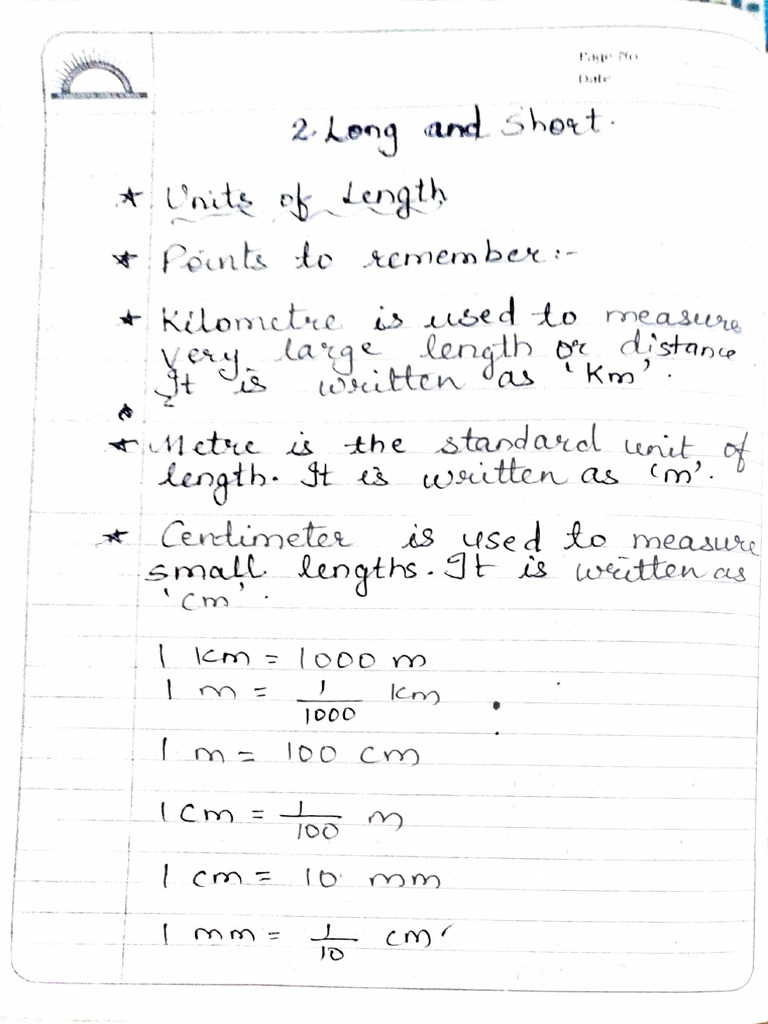 Page No
Date
2. Long and Short.
★ Units of Length
★ Points to remember :-
★ Kilometre is used to measure
very large length or distance
It is written as 'Km'.
★ Metre is the standard unit of
length. It is written as 'm'.
★ Centimeter is used to measure
small lengths. It is written as
'cm'.
1 km = 1000 m
1 m = 1/1000 km
1 m = 100 cm
1 cm = 1/100 m
1 cm = 10 mm
1 mm = 1/10 cm